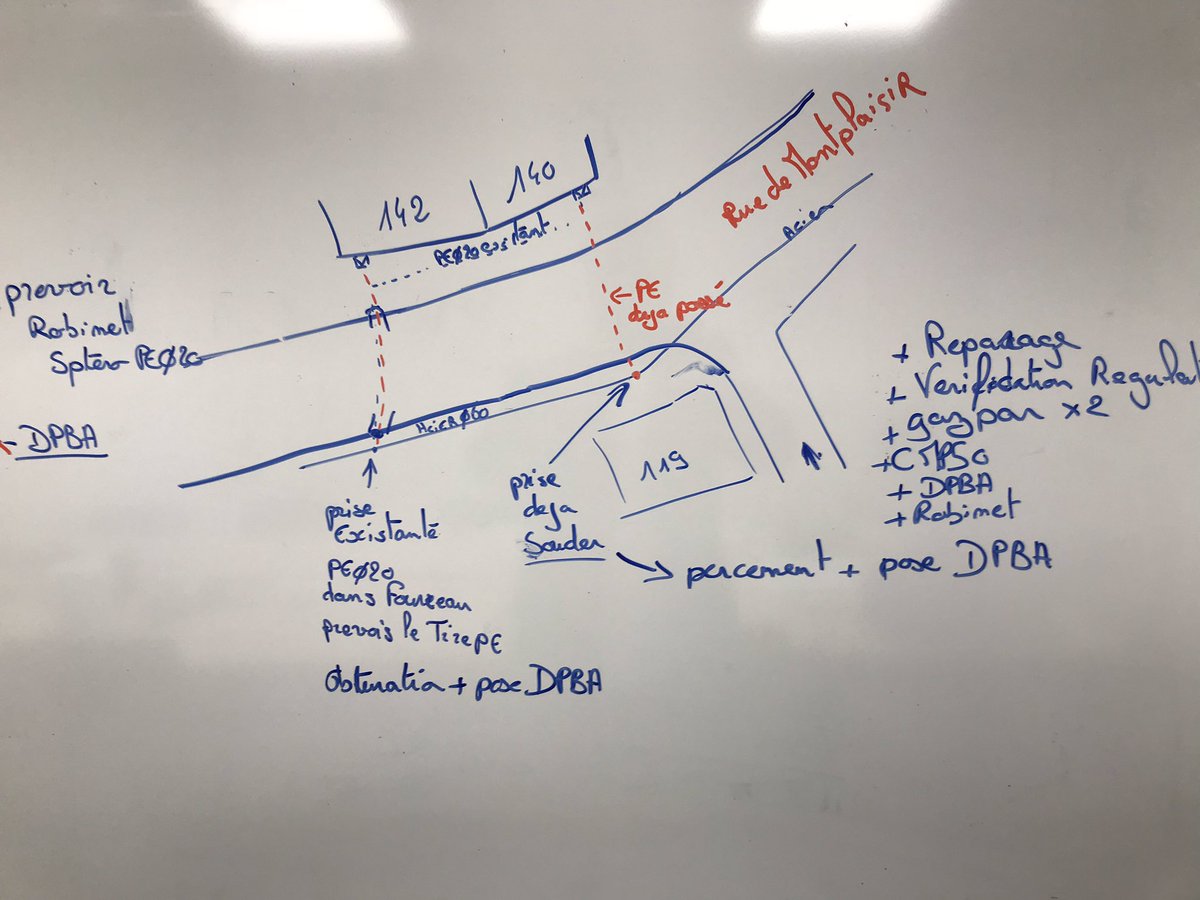 Rue de Montplaisir
142
140
PEØ20 existant
Acier
← PE
deja passé
prevoir
Robinet
PEØ20
DPBA
Acier Ø60
119
prise
Existante
PEØ20
dans Foureau
prevois le Tire PE
Obturation + pose DPBA
prise
deja
Souder
percement + pose DPBA
+ Reparage
+ Verification Regulat
+ gazpar x2
+ DPBA
+ Robinet